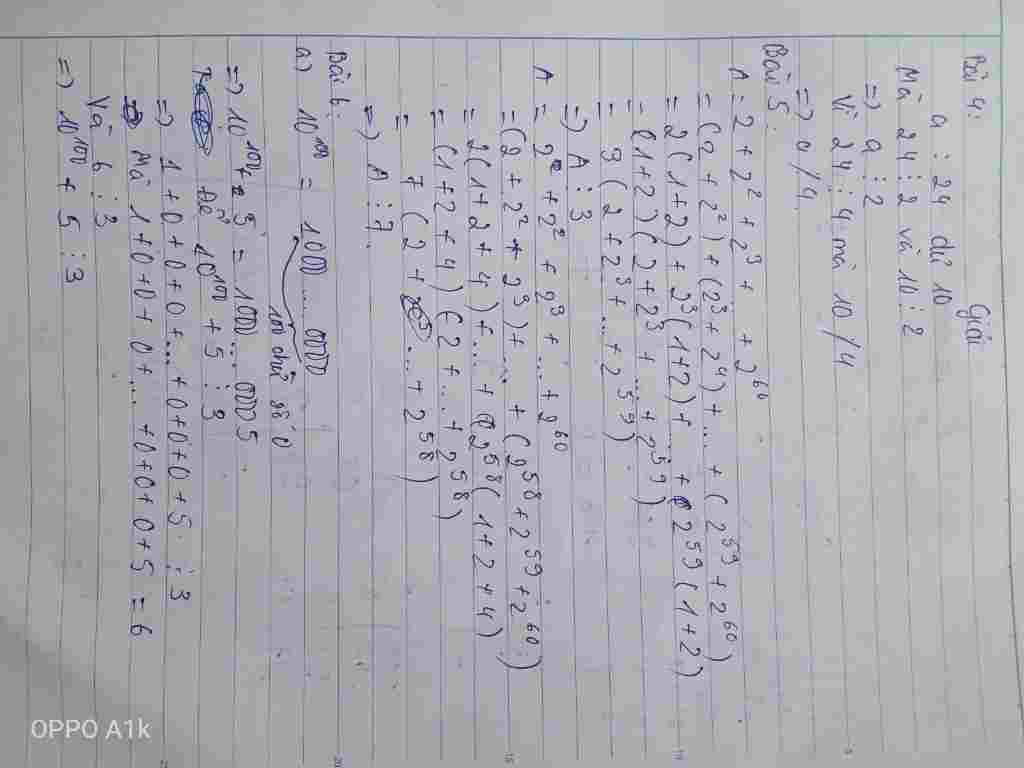 Giải
Bài 4:
a ⋮ 24 dư 10
Mà 24 ⋮ 2 và 10 ⋮ 2
=> a ⋮ 2
Vì 24 ⋮ 4 mà 10 / 4
=> a / 4
Bài 5:
A = 2 + 2² + 2³ + + 2⁶⁰
= (2 + 2²) + (2³ + 2⁴) + ... + (2⁵⁹ + 2⁶⁰)
= 2(1+2) + 2³(1+2) + ... + 2⁵⁹(1+2)
= (1+2)(2 + 2³ + ... + 2⁵⁹).
= 3(2 + 2³ + ... + 2⁵⁹).
=> A ⋮ 3
A = 2 + 2² + 2³ + ... + 2⁶⁰
= (2 + 2² + 2³) + ... + (2⁵⁸ + 2⁵⁹ + 2⁶⁰)
= 2(1 + 2 + 4) + ... + 2⁵⁸(1+2+4)
= (1+2+4)(2 + ... + 2⁵⁸)
= 7(2 + ... + 2⁵⁸)
=> A ⋮ 7.
Bài 6:
a) 10¹⁰⁰ = 1000... 0000
100 chữ số 0
=> 10¹⁰⁰ + 5 = 1000... 0005
Để 10¹⁰⁰ + 5 ⋮ 3
=> 1 + 0 + 0 + 0 + ... + 0 + 0 + 0 + 5 ⋮ 3
Mà 1 + 0 + 0 + 0 + ... + 0 + 0 + 0 + 5 = 6
Và 6 ⋮ 3
=> 10¹⁰⁰ + 5 ⋮ 3
OPPO A1k